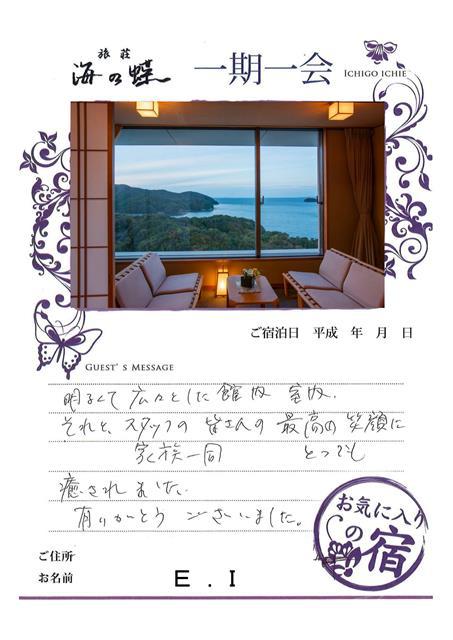 旅荘
海の蝶
一期一会
ICHIGO ICHIE
ご宿泊日 平成 年 月 日
GUEST'S MESSAGE
明るくて 広々とした 館内 室内、
それと、スタッフの 皆さんの 最高の 笑顔に
家族一同 とっても
癒されました、
有りがとう ございました。
お気に入り
の
宿
ご住所
お名前 E.I